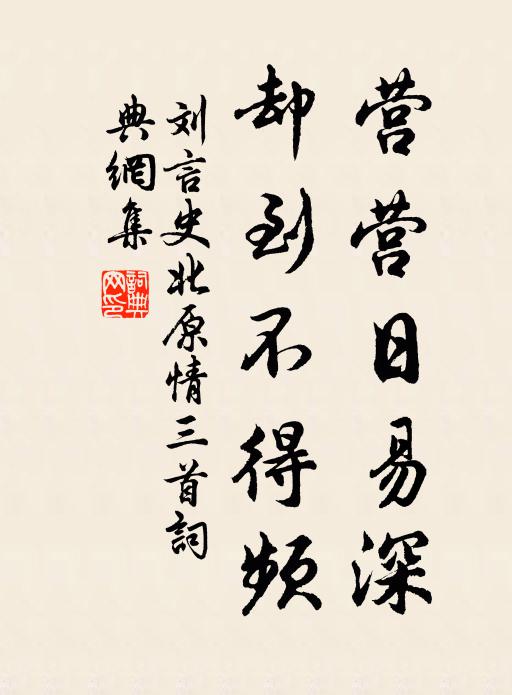 营营日易深
却到不得频
刘言史北原情三首詞
典網集
詞典
网印